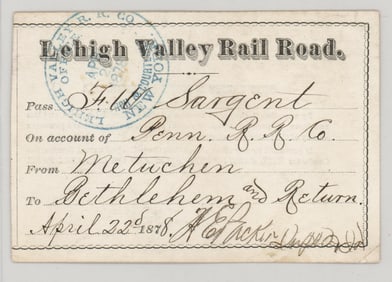 LEHIGH VALLEY R. R. CO.
OFFICE
APR
NEW YORK
Lehigh Valley Rail Road.
Pass Sargent
On account of Penn. R. R. Co.
From Metuchen
To Bethlehem and Return.
April 22d 1878. Packer